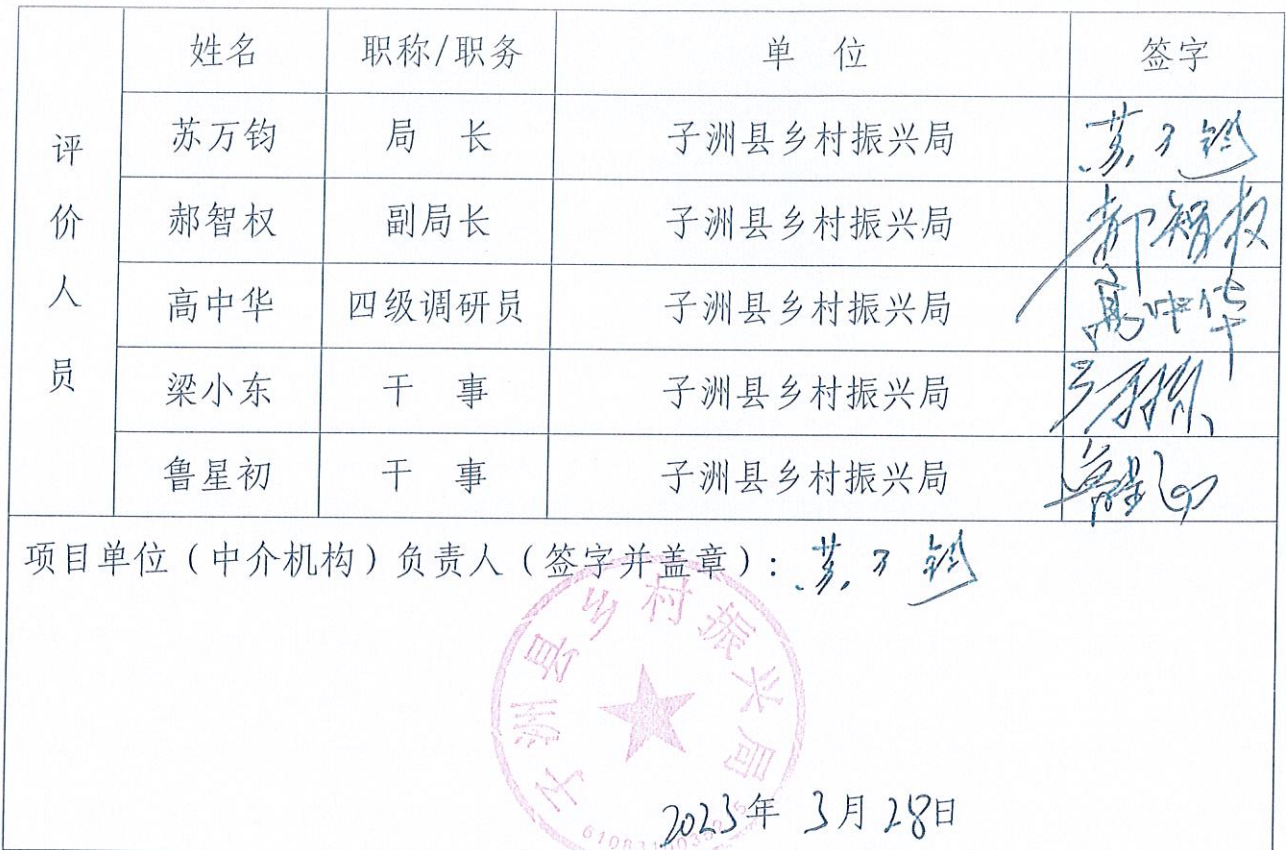 评价人员
姓名 职称/职务 单 位 签字
苏万钧 局 长 子洲县乡村振兴局 苏万钧
郝智权 副局长 子洲县乡村振兴局 郝智权
高中华 四级调研员 子洲县乡村振兴局 高中华
梁小东 干 事 子洲县乡村振兴局
鲁星初 干 事 子洲县乡村振兴局 鲁星初
项目单位（中介机构）负责人（签字并盖章）：苏万钧
子洲县乡村振兴局
2023年 3月 28日